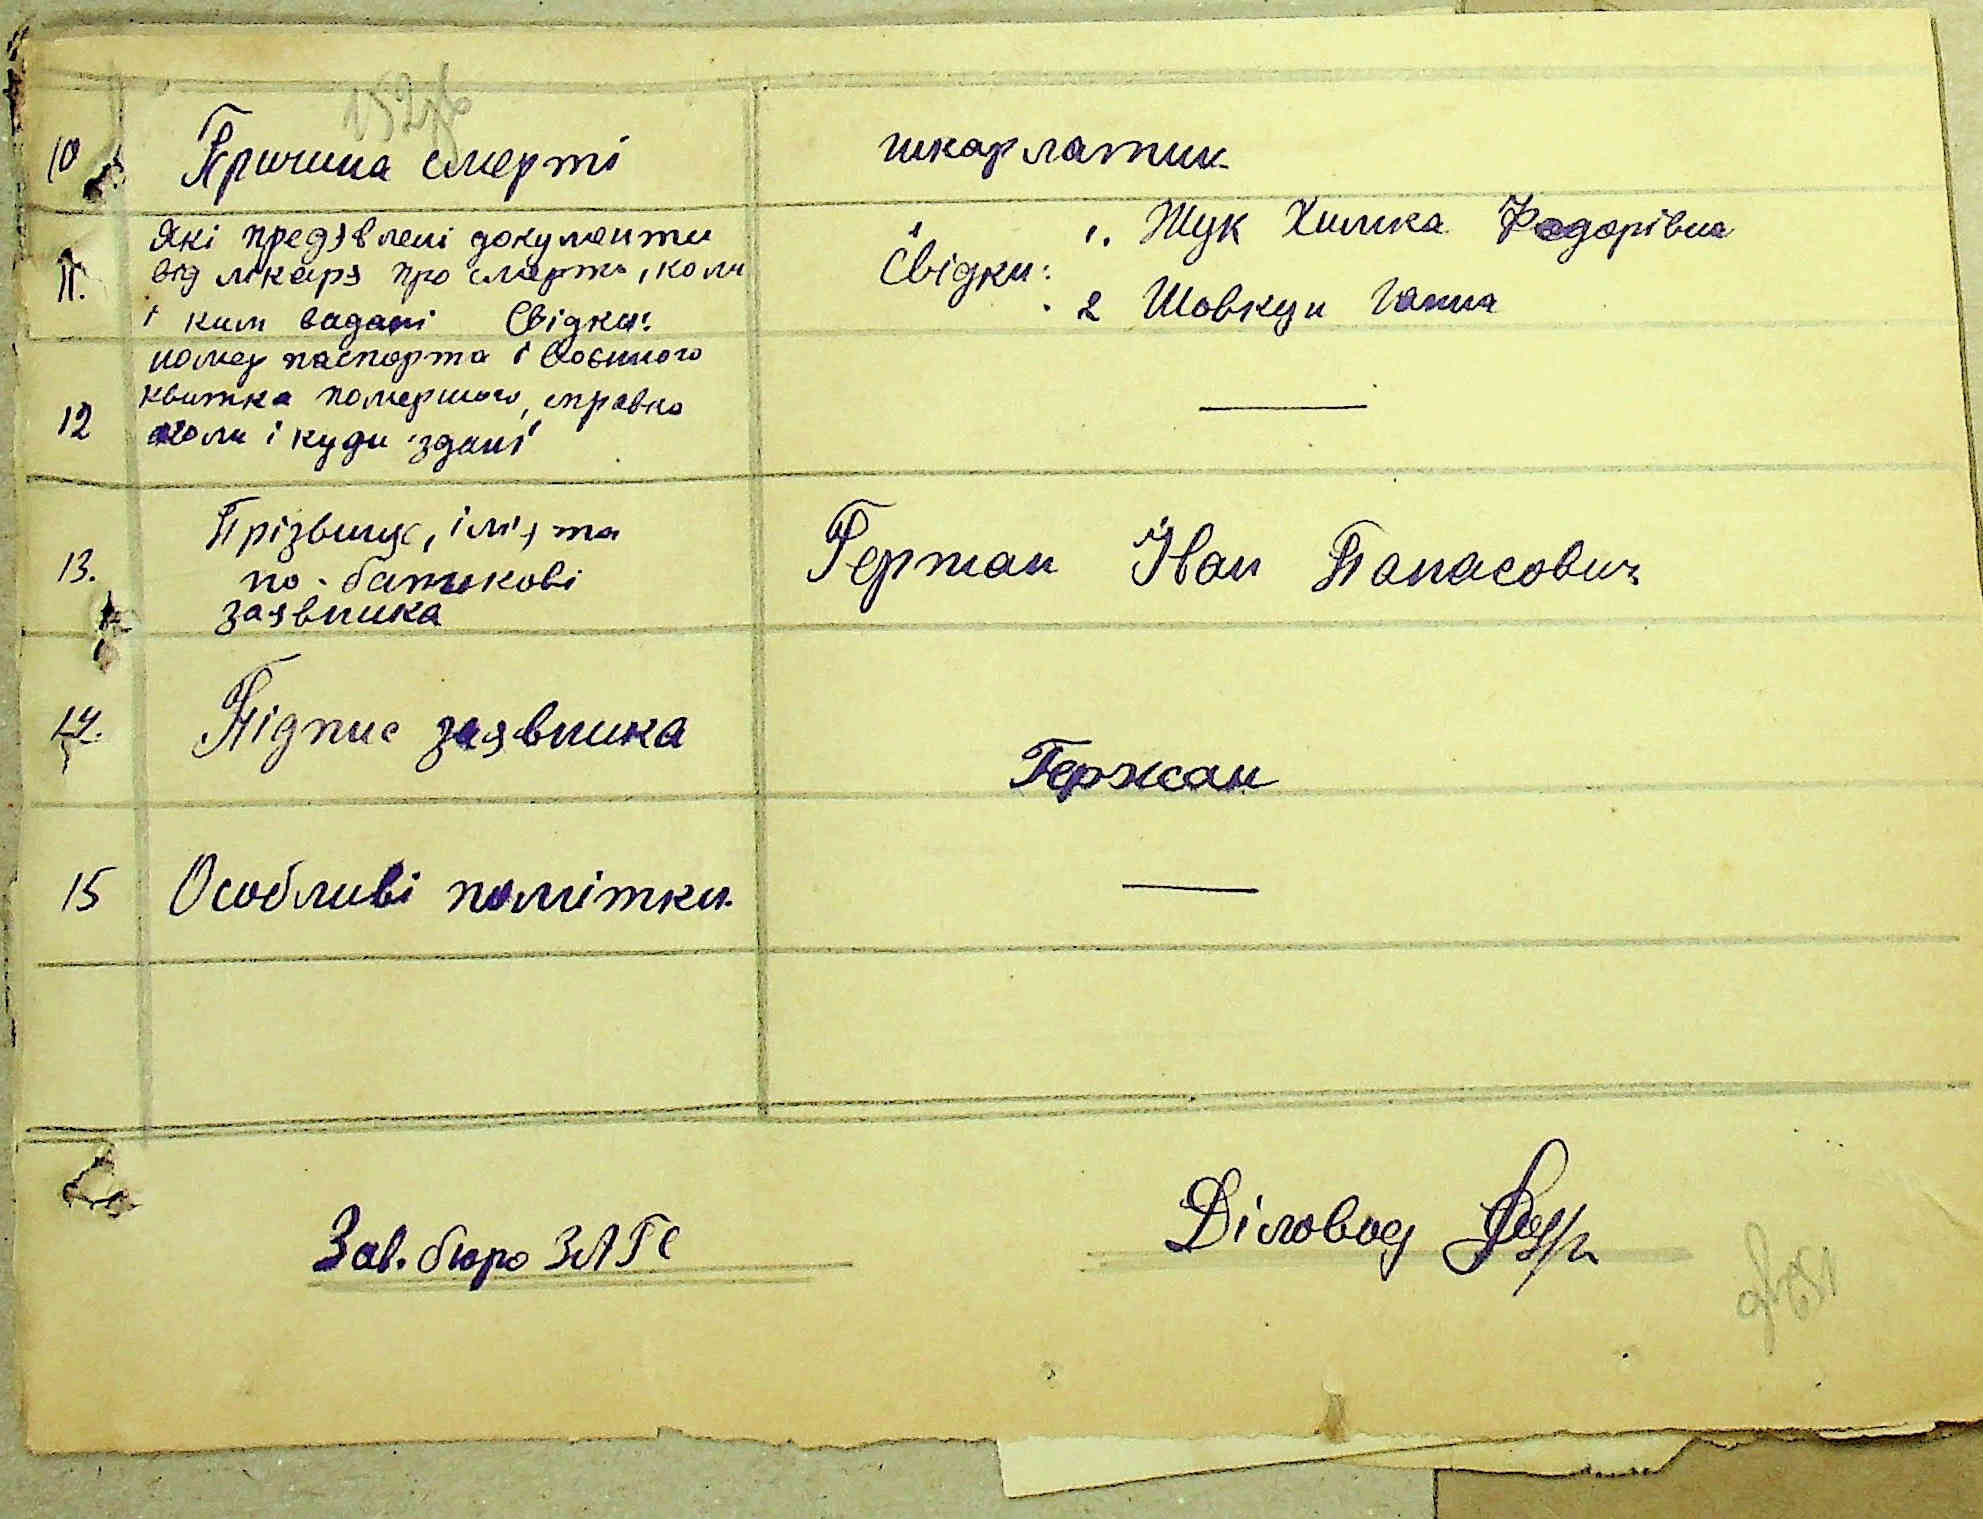 152зв
10 Причина смерті шкарлатин
Які предявлені документи
11. від лікаря про смерть, коли
і ким видані Свідки:
Свідки: 1. Жук Химка Федорівна
2 Шовкун Ганна
номер паспорта і военного
квитка помершого, справка
12 коли і куди здані —
Прізвище, імʼя та
13. по-батькові
заявника
Герман Іван Панасович
14. Підпис заявника Гержан
15 Особливі помітки. —
Зав. бюро ЗАГС
Діловод